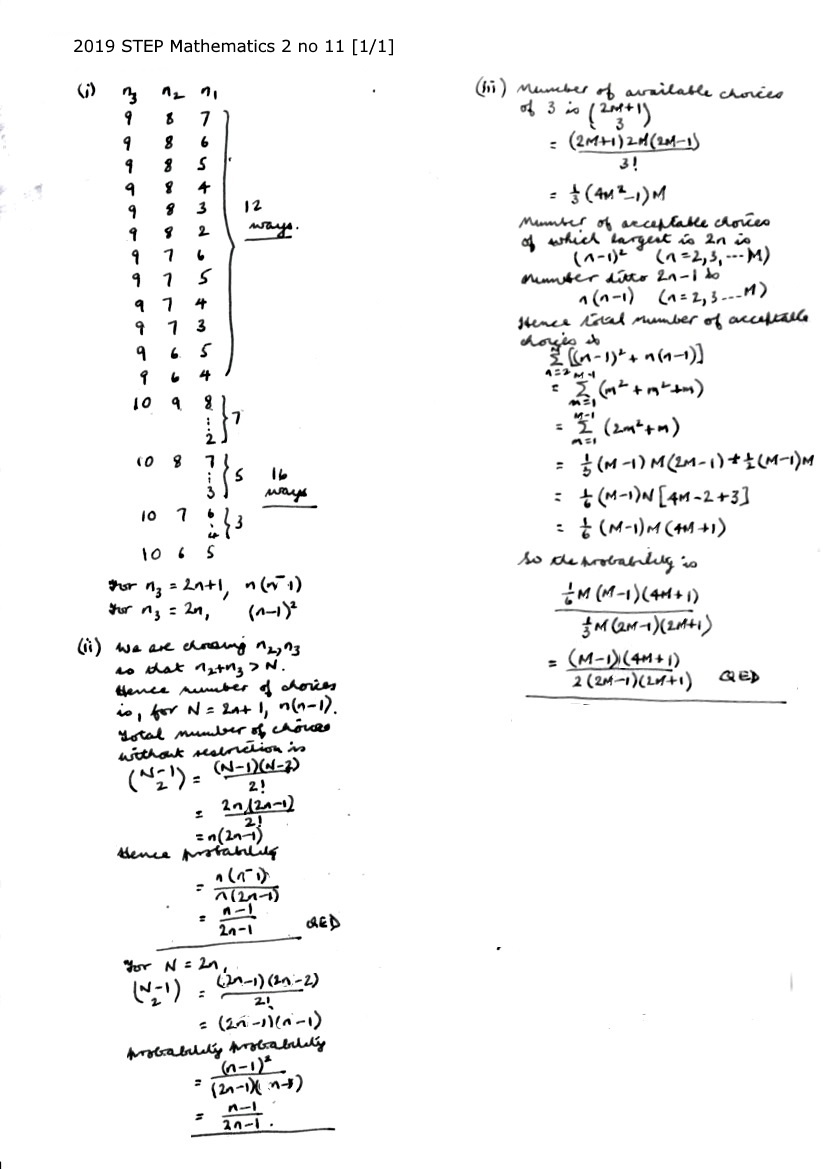 2019 STEP Mathematics 2 no 11 [1/1]
(i) n₃ n₂ n₁
9 8 7
9 8 6
9 8 5
9 8 4
9 8 3
9 8 2
9 7 6
9 7 5
9 7 4
9 7 3
9 6 5
9 6 4
12
ways.
10 9 8
⋮ } 7
2
10 8 7
⋮ } 5
3
16
ways
10 7 6
⋮ } 3
4
10 6 5
For n₃ = 2n+1, n(n-1)
For n₃ = 2n, (n-1)²
(ii) We are choosing n₂, n₃
so that n₂+n₃ > N.
Hence number of choices
is, for N = 2n+1, n(n-1).
Total number of choices
without restriction is
(N-1 2) = (N-1)(N-2)/2!
= 2n(2n-1)/2!
= n(2n-1)
Hence probability
= n(n-1)/n(2n-1)
= n-1/2n-1 QED
For N = 2n,
(N-1 2) = (2n-1)(2n-2)/2!
= (2n-1)(n-1)
probability probability
= (n-1)²/(2n-1)(n-1)
= n-1/2n-1.
(iii) Number of available choices
of 3 is (2M+1 3)
= (2M+1)2M(2M-1)/3!
= ⅓(4M²-1)M
Number of acceptable choices
of which largest is 2n is
(n-1)² (n=2,3,---M)
Number ditto 2n-1 is
n(n-1) (n=2,3---M)
Hence total number of acceptable
choices is
Σ n=2 [(n-1)² + n(n-1)]
= Σ m=1 M-1 (m²+m²+m)
= Σ m=1 M-1 (2m²+m)
= ⅓(M-1)M(2M-1)+½(M-1)M
= ⅙(M-1)M[4M-2+3]
= ⅙(M-1)M(4M+1)
So the probability is
⅙M(M-1)(4M+1)/⅓M(2M-1)(2M+1)
= (M-1)(4M+1)/2(2M-1)(2M+1) QED